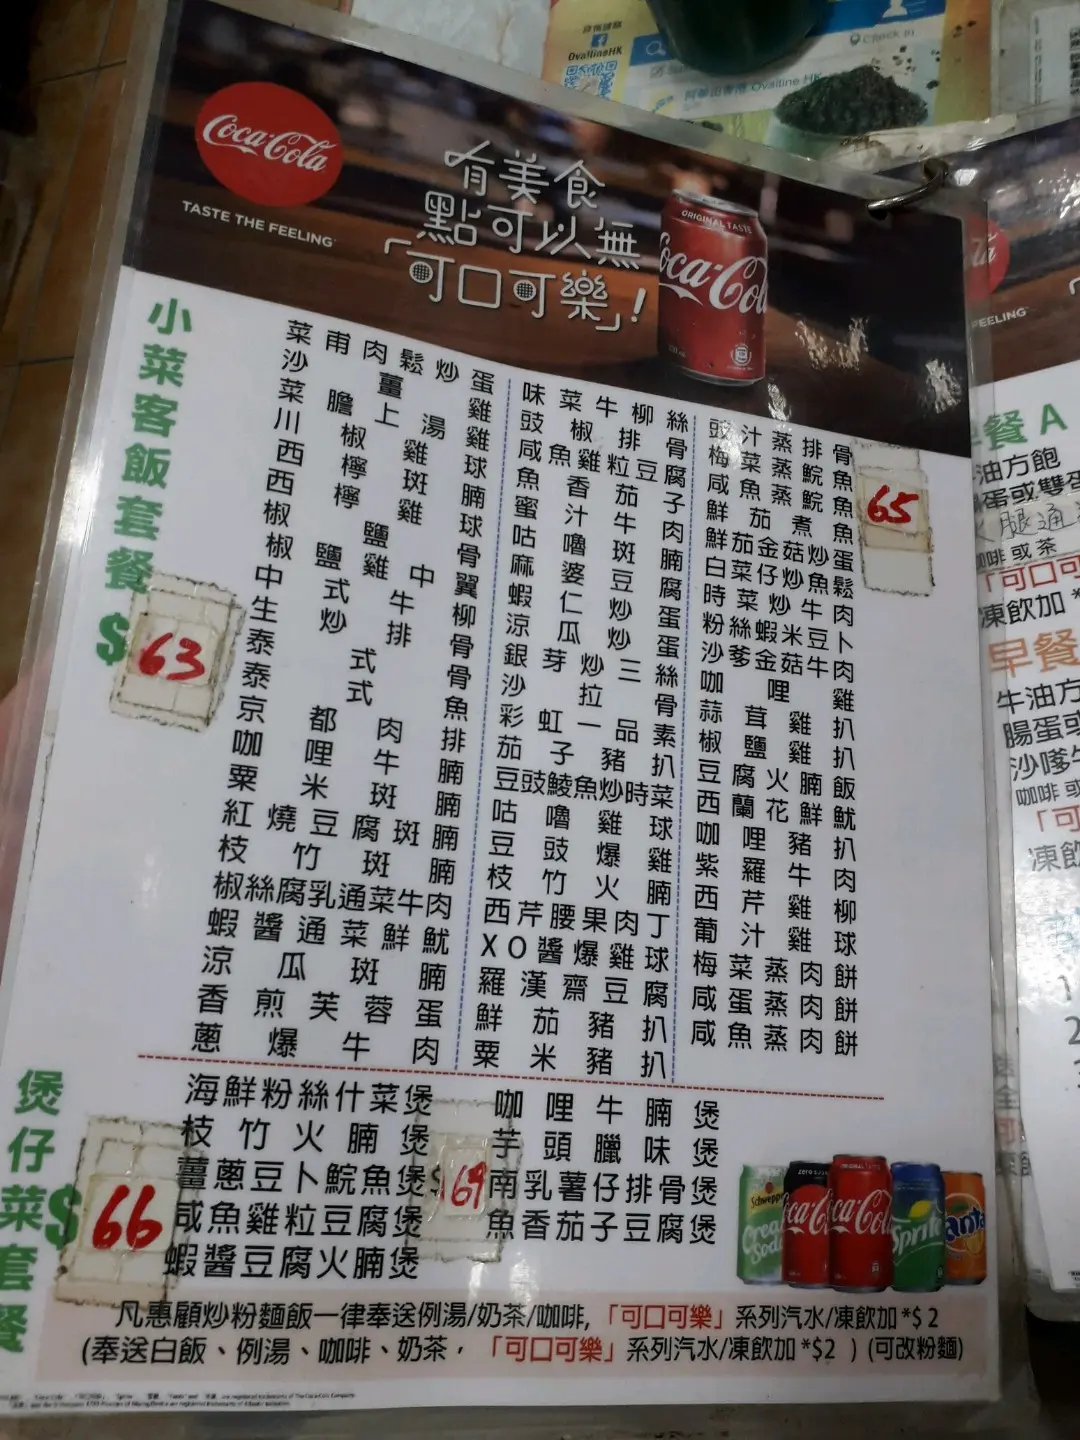 Coca-Cola
TASTE THE FEELING
有美食
點可以無
「可口可樂」!
ORIGINAL TASTE
Coca-Cola
OvaltineHK
Check in
小菜客飯套餐
$63
菜甫肉鬆炒蛋
沙薑雞
菜膽上湯雞
川椒雞球
西檸斑腩
西檸雞球
椒鹽骨
椒鹽雞中翼
中式牛柳
生炒排骨
泰式骨
泰式魚
京都肉排
咖哩牛腩
粟米斑腩
紅燒豆腐斑腩
枝竹斑腩
椒絲腐乳通菜牛肉
蝦醬通菜鮮魷
涼瓜斑腩
香煎芙蓉蛋
蔥爆牛肉
味菜牛柳絲
豉椒排骨
咸魚雞粒豆腐
魚香茄子
蜜汁牛肉
咕嚕斑腩
麻婆豆腐
蝦仁炒蛋
涼瓜炒蛋
銀芽炒三絲
沙拉骨
彩虹一品素
茄子豬扒
豆豉鯪魚炒時菜
咕嚕雞球
豆豉爆雞
枝竹火腩
西芹腰果肉丁
XO醬爆雞球
羅漢齋豆腐
鮮茄豬扒
粟米豬扒
65
豉汁蒸排骨
梅菜蒸鯇魚
咸魚蒸鯇魚
鮮茄煮魚
鮮茄金菇炒蛋
白菜仔炒魚鬆
時菜炒牛肉
粉絲蝦米豆卜
沙爹金菇牛肉
咖哩雞
蒜茸雞扒
椒鹽雞扒
豆腐火腩飯
西蘭花鮮魷
咖哩豬扒
紫羅牛肉
西芹雞柳
葡汁雞球
梅菜蒸肉餅
咸蛋蒸肉餅
咸魚蒸肉餅
煲仔菜套餐
$66
海鮮粉絲什菜煲
枝竹火腩煲
薑蔥豆卜鯇魚煲
咸魚雞粒豆腐煲
蝦醬豆腐火腩煲
$69
咖哩牛腩煲
芋頭臘味煲
南乳薯仔排骨煲
魚香茄子豆腐煲
凡惠顧炒粉麵飯一律奉送例湯/奶茶/咖啡,「可口可樂」系列汽水/凍飲加*$2
(奉送白飯、例湯、咖啡、奶茶，「可口可樂」系列汽水/凍飲加*$2 ) (可改粉麵)
餐A
油方飽
咖啡或茶
凍飲加
早餐
牛油方
腸蛋或
沙嗲牛
咖啡或
凍飲